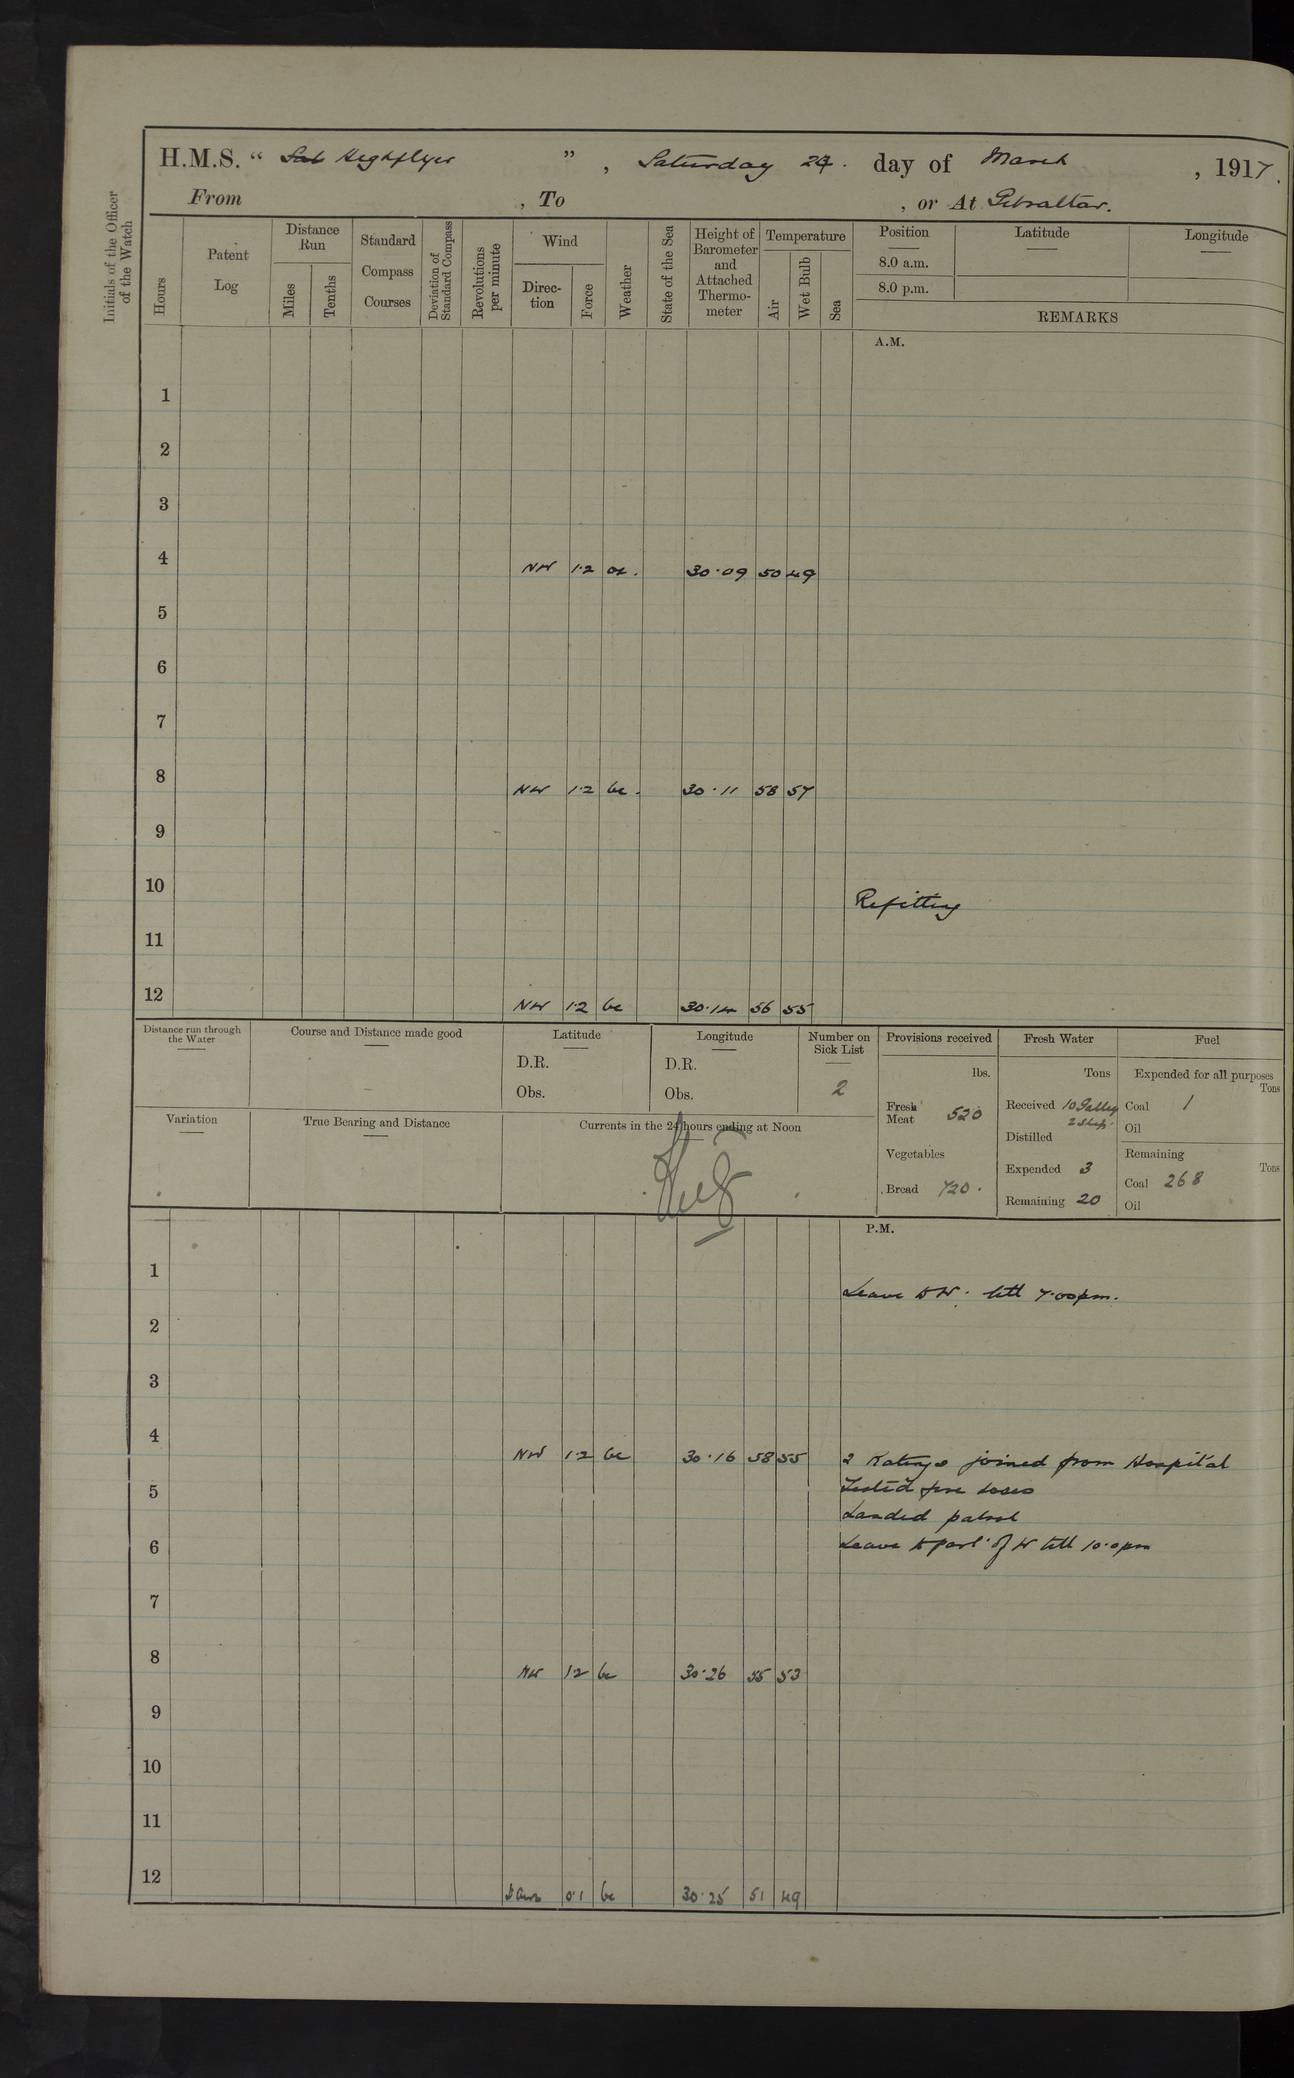 H.M.S. “ Sat Highflyer ” , Saturday 24. day of March , 1917.
From , To , or At Gibraltar.
Initials of the Officer of the Watch
Hours
Patent Log
Distance Run
Miles
Tenths
Standard Compass Courses
Deviation of Standard Compass
Revolutions per minute
Wind
Direc-tion
Force
Weather
State of the Sea
Height of Barometer and Attached Thermo-meter
Temperature
Air
Wet Bulb
Sea
Position
Latitude
Longitude
8.0 a.m.
8.0 p.m.
REMARKS
A.M.
1
2
3
4 NW 1·2 oc. 30·09 50 49
5
6
7
8 NW 1·2 bc. 30·11 58 57
9
10 Refitting
11
12 NW 1·2 bc 30·14 56 55
Distance run through the Water
Course and Distance made good
Latitude
D.R.
Obs.
Longitude
D.R.
Obs.
Number on Sick List
2
Provisions received
lbs.
Fresh Meat 520
Vegetables
Bread 720.
Fresh Water
Tons
Received 10 Galley
2 Ship.
Distilled
Expended 3
Remaining 20
Fuel
Expended for all purposes
Tons
Coal 1
Oil
Remaining
Tons
Coal 268
Oil
Variation
True Bearing and Distance
Currents in the 24 hours ending at Noon
P.M.
1 Leave to W. till 7·00pm.
2
3
4 NW 1·2 bc 30·16 58 55 2 Ratings joined from Hospital
5 Tested fire hoses
Landed patrol
6 Leave to part of W till 10·0pm
7
8 NW 1·2 bc 30·26 55 53
9
10
11
12 0·1 bc 30·25 51 49